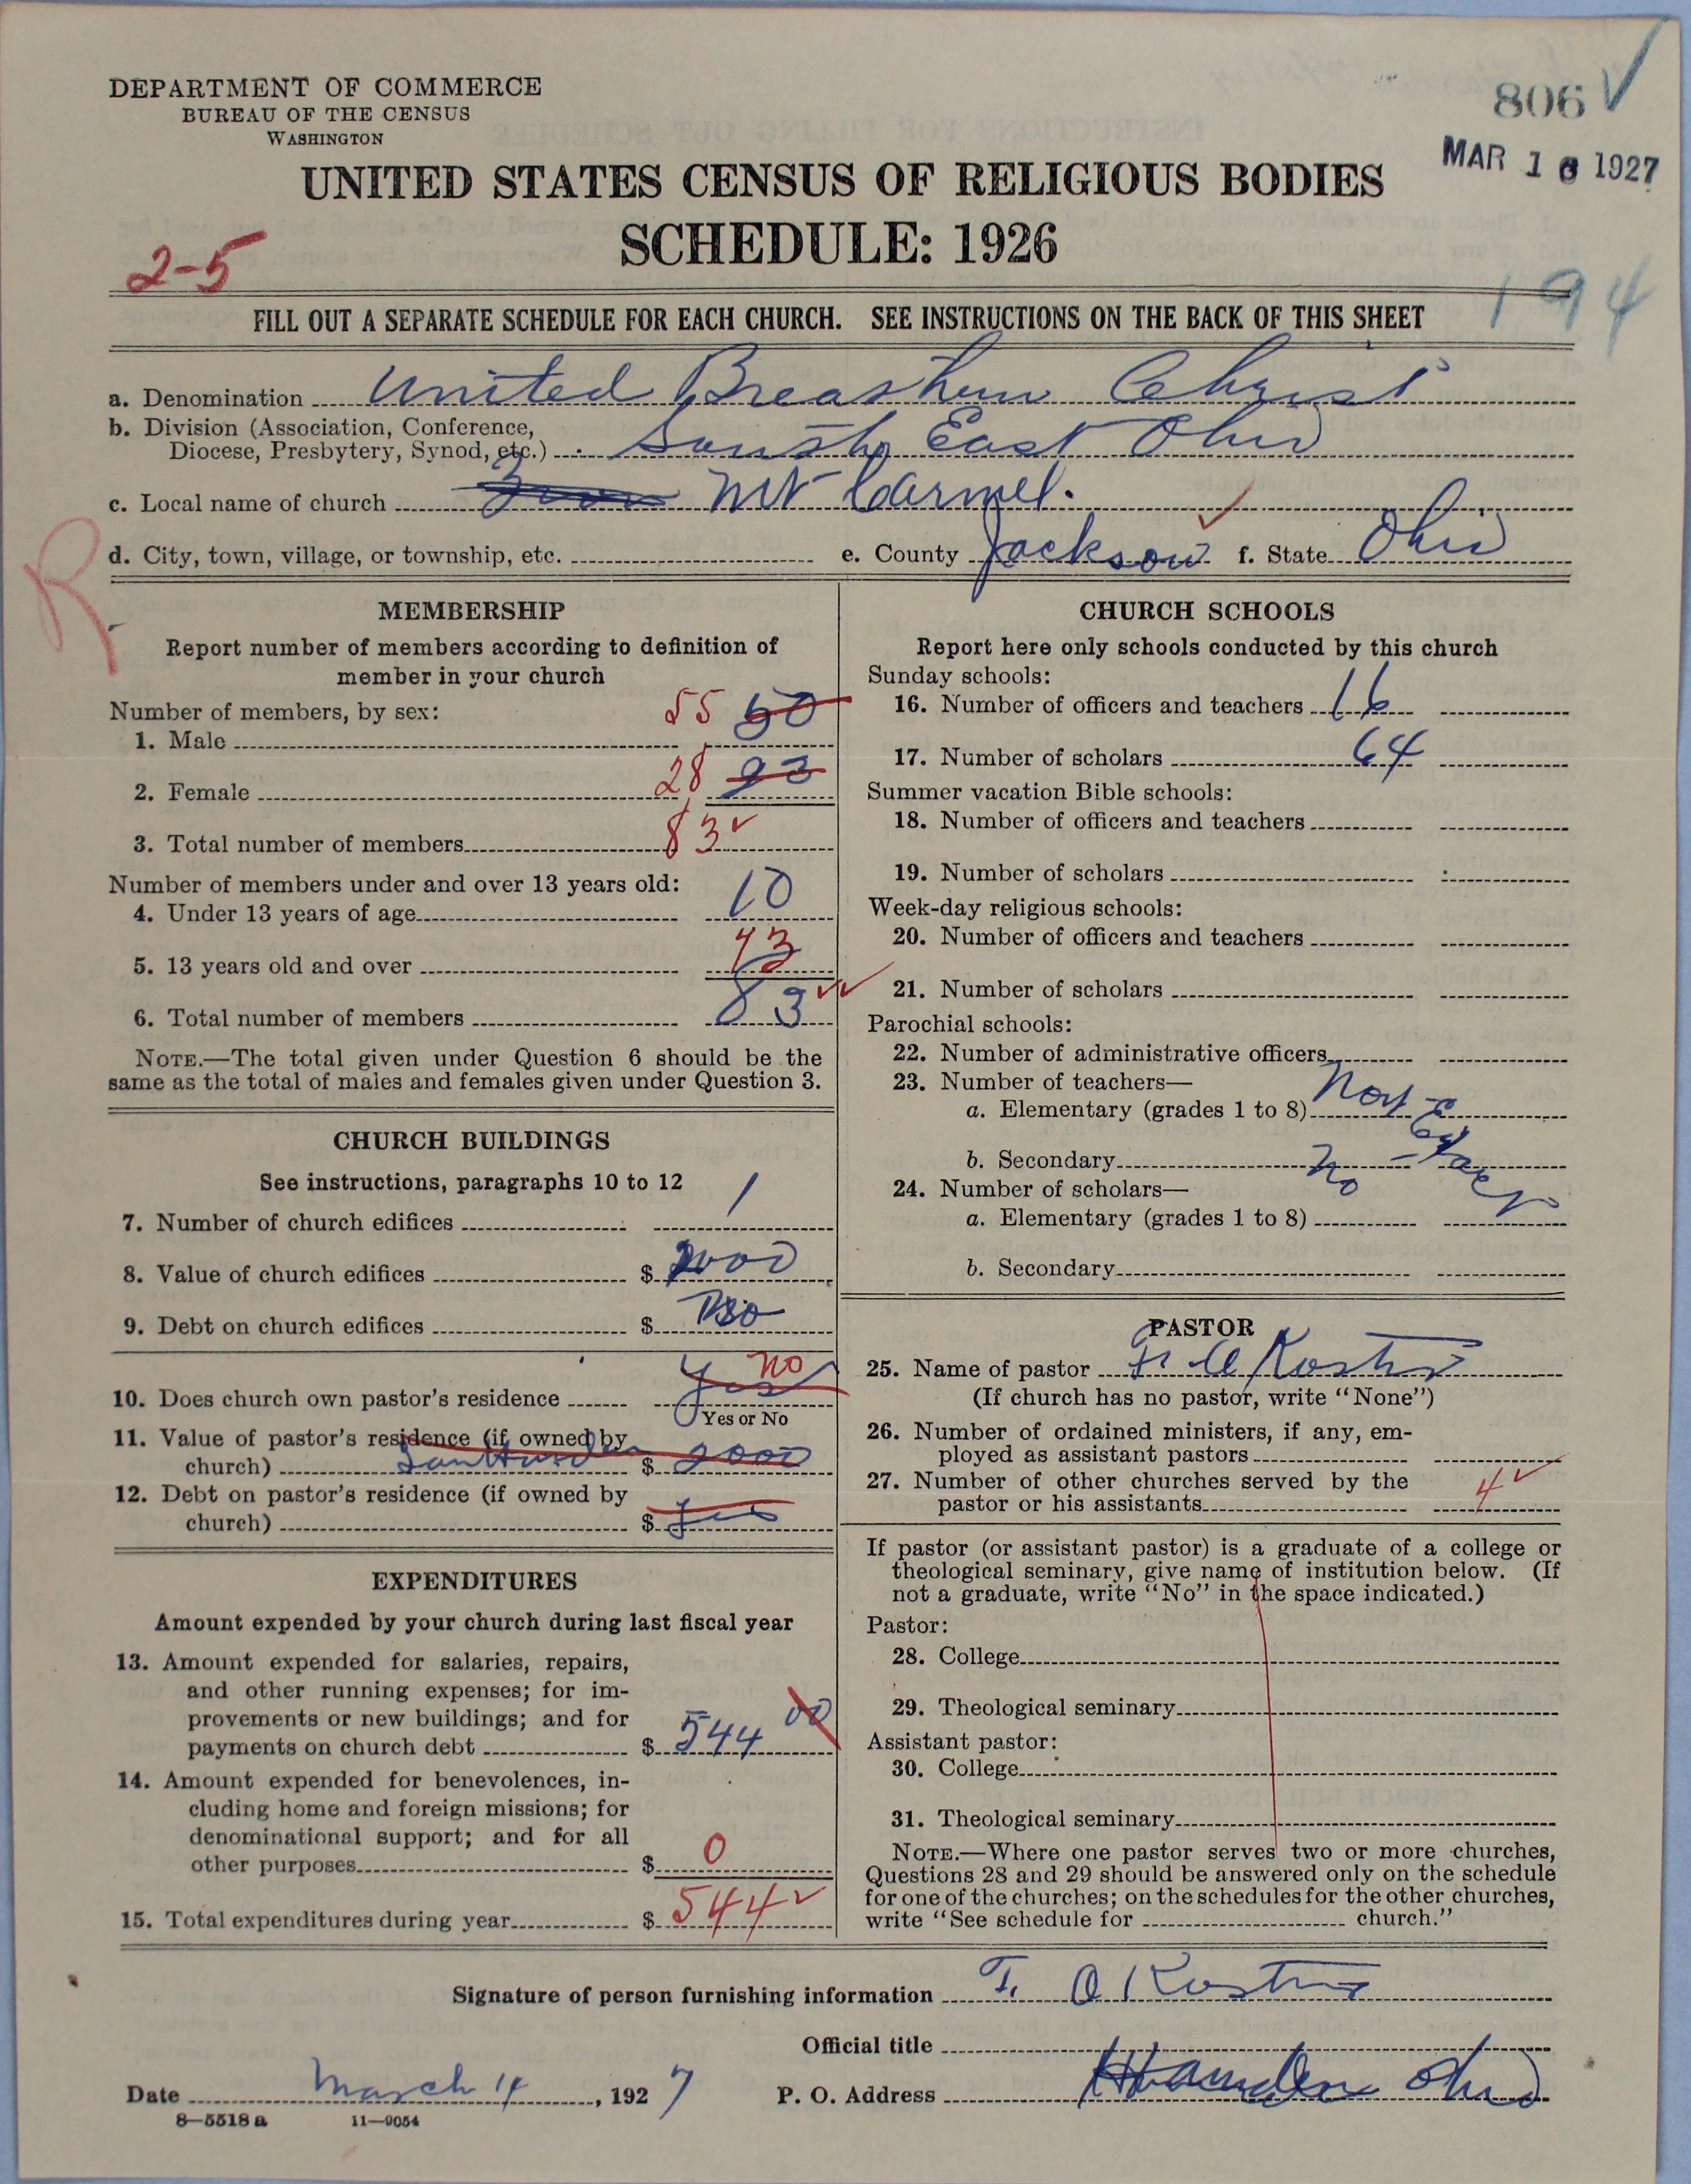 DEPARTMENT OF COMMERCE
BUREAU OF THE CENSUS
WASHINGTON
806 ✓
MAR 16 1927
UNITED STATES CENSUS OF RELIGIOUS BODIES
SCHEDULE: 1926
2-5
194
FILL OUT A SEPARATE SCHEDULE FOR EACH CHURCH. SEE INSTRUCTIONS ON THE BACK OF THIS SHEET
a. Denomination United Breathern Christ
b. Division (Association, Conference,
Diocese, Presbytery, Synod, etc.) South East Ohio
c. Local name of church Mt Carmel.
d. City, town, village, or township, etc. e. County Jackson f. State Ohio
R
MEMBERSHIP
Report number of members according to definition of
member in your church
Number of members, by sex:
1. Male 55
2. Female 28
3. Total number of members 83 ✓
Number of members under and over 13 years old:
4. Under 13 years of age 10
5. 13 years old and over 73
6. Total number of members 83 ✓✓
NOTE.—The total given under Question 6 should be the
same as the total of males and females given under Question 3.
CHURCH BUILDINGS
See instructions, paragraphs 10 to 12
7. Number of church edifices 1
8. Value of church edifices $ 2000
9. Debt on church edifices $
10. Does church own pastor's residence Yes no
Yes or No
11. Value of pastor's residence (if owned by
church) $ 2000
12. Debt on pastor's residence (if owned by
church) $
EXPENDITURES
Amount expended by your church during last fiscal year
13. Amount expended for salaries, repairs,
and other running expenses; for im-
provements or new buildings; and for
payments on church debt $ 544 00
14. Amount expended for benevolences, in-
cluding home and foreign missions; for
denominational support; and for all
other purposes $ 0
15. Total expenditures during year $ 544 ✓
CHURCH SCHOOLS
Report here only schools conducted by this church
Sunday schools:
16. Number of officers and teachers 16
17. Number of scholars 64
Summer vacation Bible schools:
18. Number of officers and teachers
19. Number of scholars
Week-day religious schools:
20. Number of officers and teachers
21. Number of scholars
Parochial schools:
22. Number of administrative officers
23. Number of teachers—
a. Elementary (grades 1 to 8)
b. Secondary No
24. Number of scholars—
a. Elementary (grades 1 to 8)
b. Secondary
PASTOR
25. Name of pastor
(If church has no pastor, write "None")
26. Number of ordained ministers, if any, em-
ployed as assistant pastors
27. Number of other churches served by the
pastor or his assistants 4 ✓
If pastor (or assistant pastor) is a graduate of a college or
theological seminary, give name of institution below. (If
not a graduate, write "No" in the space indicated.)
Pastor:
28. College
29. Theological seminary
Assistant pastor:
30. College
31. Theological seminary
NOTE.—Where one pastor serves two or more churches,
Questions 28 and 29 should be answered only on the schedule
for one of the churches; on the schedules for the other churches,
write "See schedule for church."
Signature of person furnishing information
Official title
Date March 14, 1927 P. O. Address Hamden Ohio
8—5518 a 11—9054